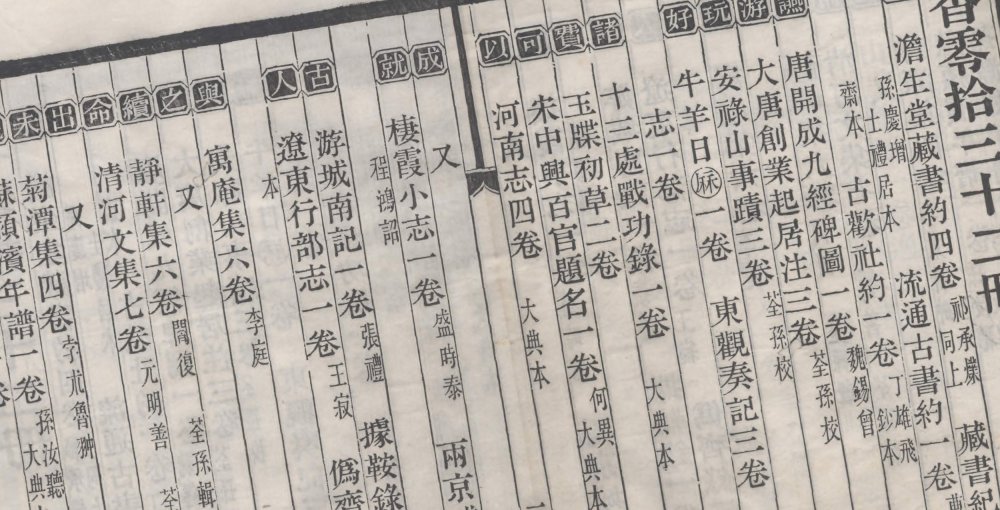 零拾三十二冊
澹生堂藏書約四卷 祁承㸁 藏書紀
同上
流通古書約一卷
孫慶增
士禮居本
丁雄飛
鈔本
古歡社約一卷 魏錫曾
齋本
唐開成九經碑圖一卷 荃孫校
大唐創業起居注三卷 荃孫校
安祿山事蹟三卷 東觀奏記三卷
牛羊日厤一卷
志一卷 大典本
十三處戰功錄一卷
玉牒初草二卷
朱中興百官題名一卷 何異
大典本
河南志四卷 大典本
讌游玩好
諸費可以
又
棲霞小志一卷 盛時泰 兩京
程鴻詔
成就
據鞍錄
游城南記一卷 張禮
遼東行部志一卷 王寂 僞齊
本
古人
寓庵集六卷 李庭
又
荃孫輯
靜軒集六卷 閻復
清河文集七卷 元明善 荃
又
菊潭集四卷 孛朮魯翀
蘇潁濱年譜一卷 孫汝聽
大典本
與之續命出未